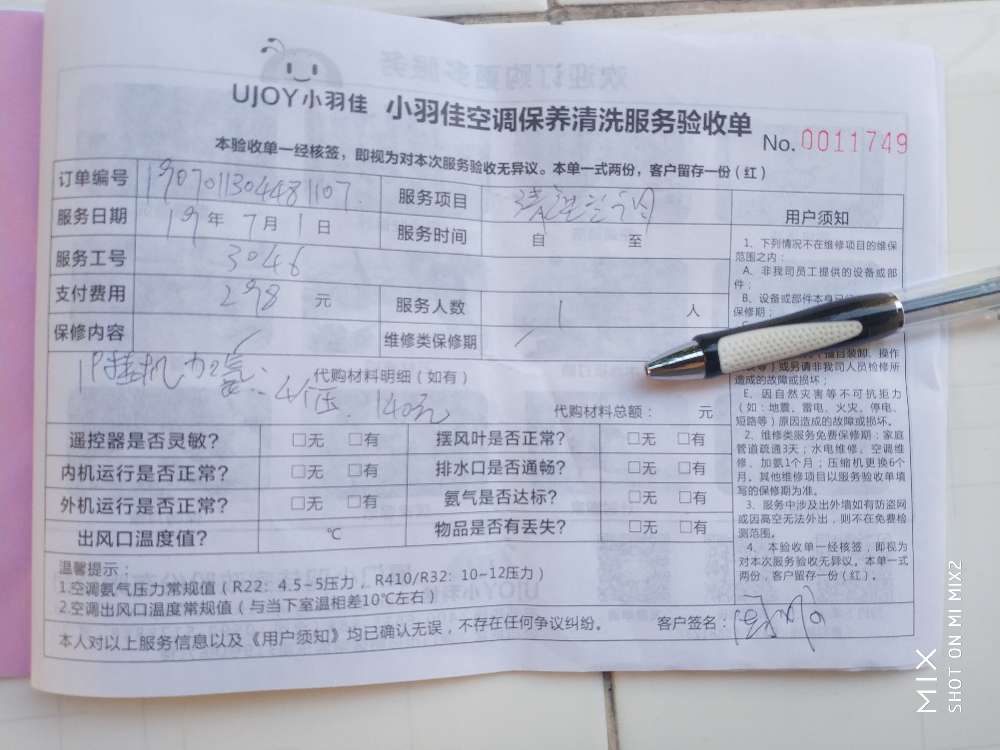 UJOY小羽佳 小羽佳空调保养清洗服务验收单
No. 0011749
本验收单一经核签，即视为对本次服务验收无异议。本单一式两份，客户留存一份（红）
订单编号 1907011304481107 服务项目
服务日期 19年 7月 1日 服务时间 自 至
服务工号 3046
支付费用 298 元 服务人数 1 人
保修内容 维修类保修期
1P挂机加氨：4个压，140元
代购材料明细（如有）
代购材料总额： 元
遥控器是否灵敏？ □无 □有 摆风叶是否正常？ □无 □有
内机运行是否正常？ □无 □有 排水口是否通畅？ □无 □有
外机运行是否正常？ □无 □有 氨气是否达标？ □无 □有
出风口温度值？ ℃ 物品是否有丢失？ □无 □有
温馨提示：
1.空调氨气压力常规值（R22：4.5~5压力，R410/R32：10~12压力）
2.空调出风口温度常规值（与当下室温相差10℃左右）
本人对以上服务信息以及《用户须知》均已确认无误，不存在任何争议纠纷。 客户签名：
用户须知
1、下列情况不在维修项目的维保
范围之内：
A、非我司员工提供的设备或部
件；
B、设备或部件本身已
保修期；
（擅自装卸、操作
等）或另请非我司人员检修所
造成的故障或损坏；
E、因自然灾害等不可抗拒力
（如：地震、雷电、火灾、停电、
短路等）原因造成的故障或损坏。
2、维修类服务免费保修期：家庭
管道疏通3天；水电维修、空调维
修、加氨1个月；压缩机更换6个
月。其他维修项目以服务验收单填
写的保修期为准。
3、服务中涉及出外墙如有防盗网
或因高空无法外出，则不在免费检
测范围。
4、本验收单一经核签，即视为
对本次服务验收无异议。本单一式
两份，客户留存一份（红）。
MIX
SHOT ON MI MIX2